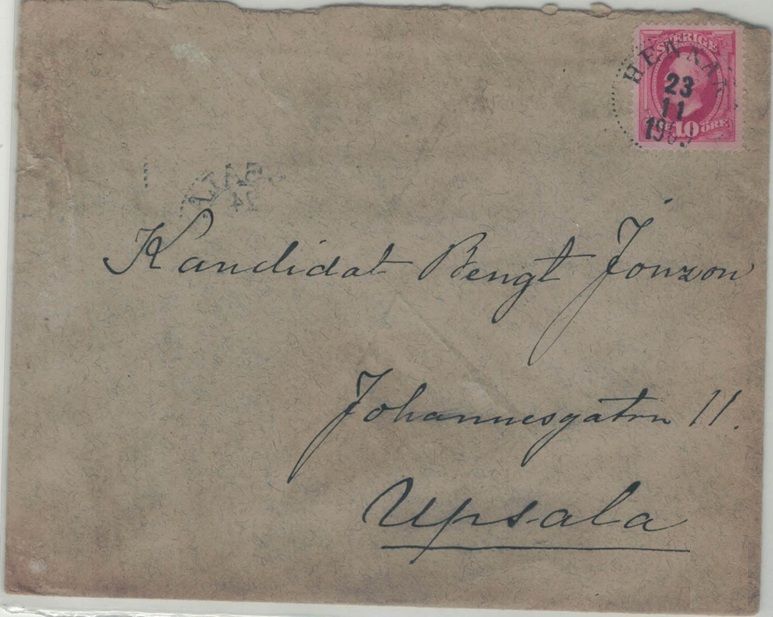 SVERIGE
10 ÖRE
23
11
Kandidat Bengt Jonzon
Johannesgatan 11.
Upsala